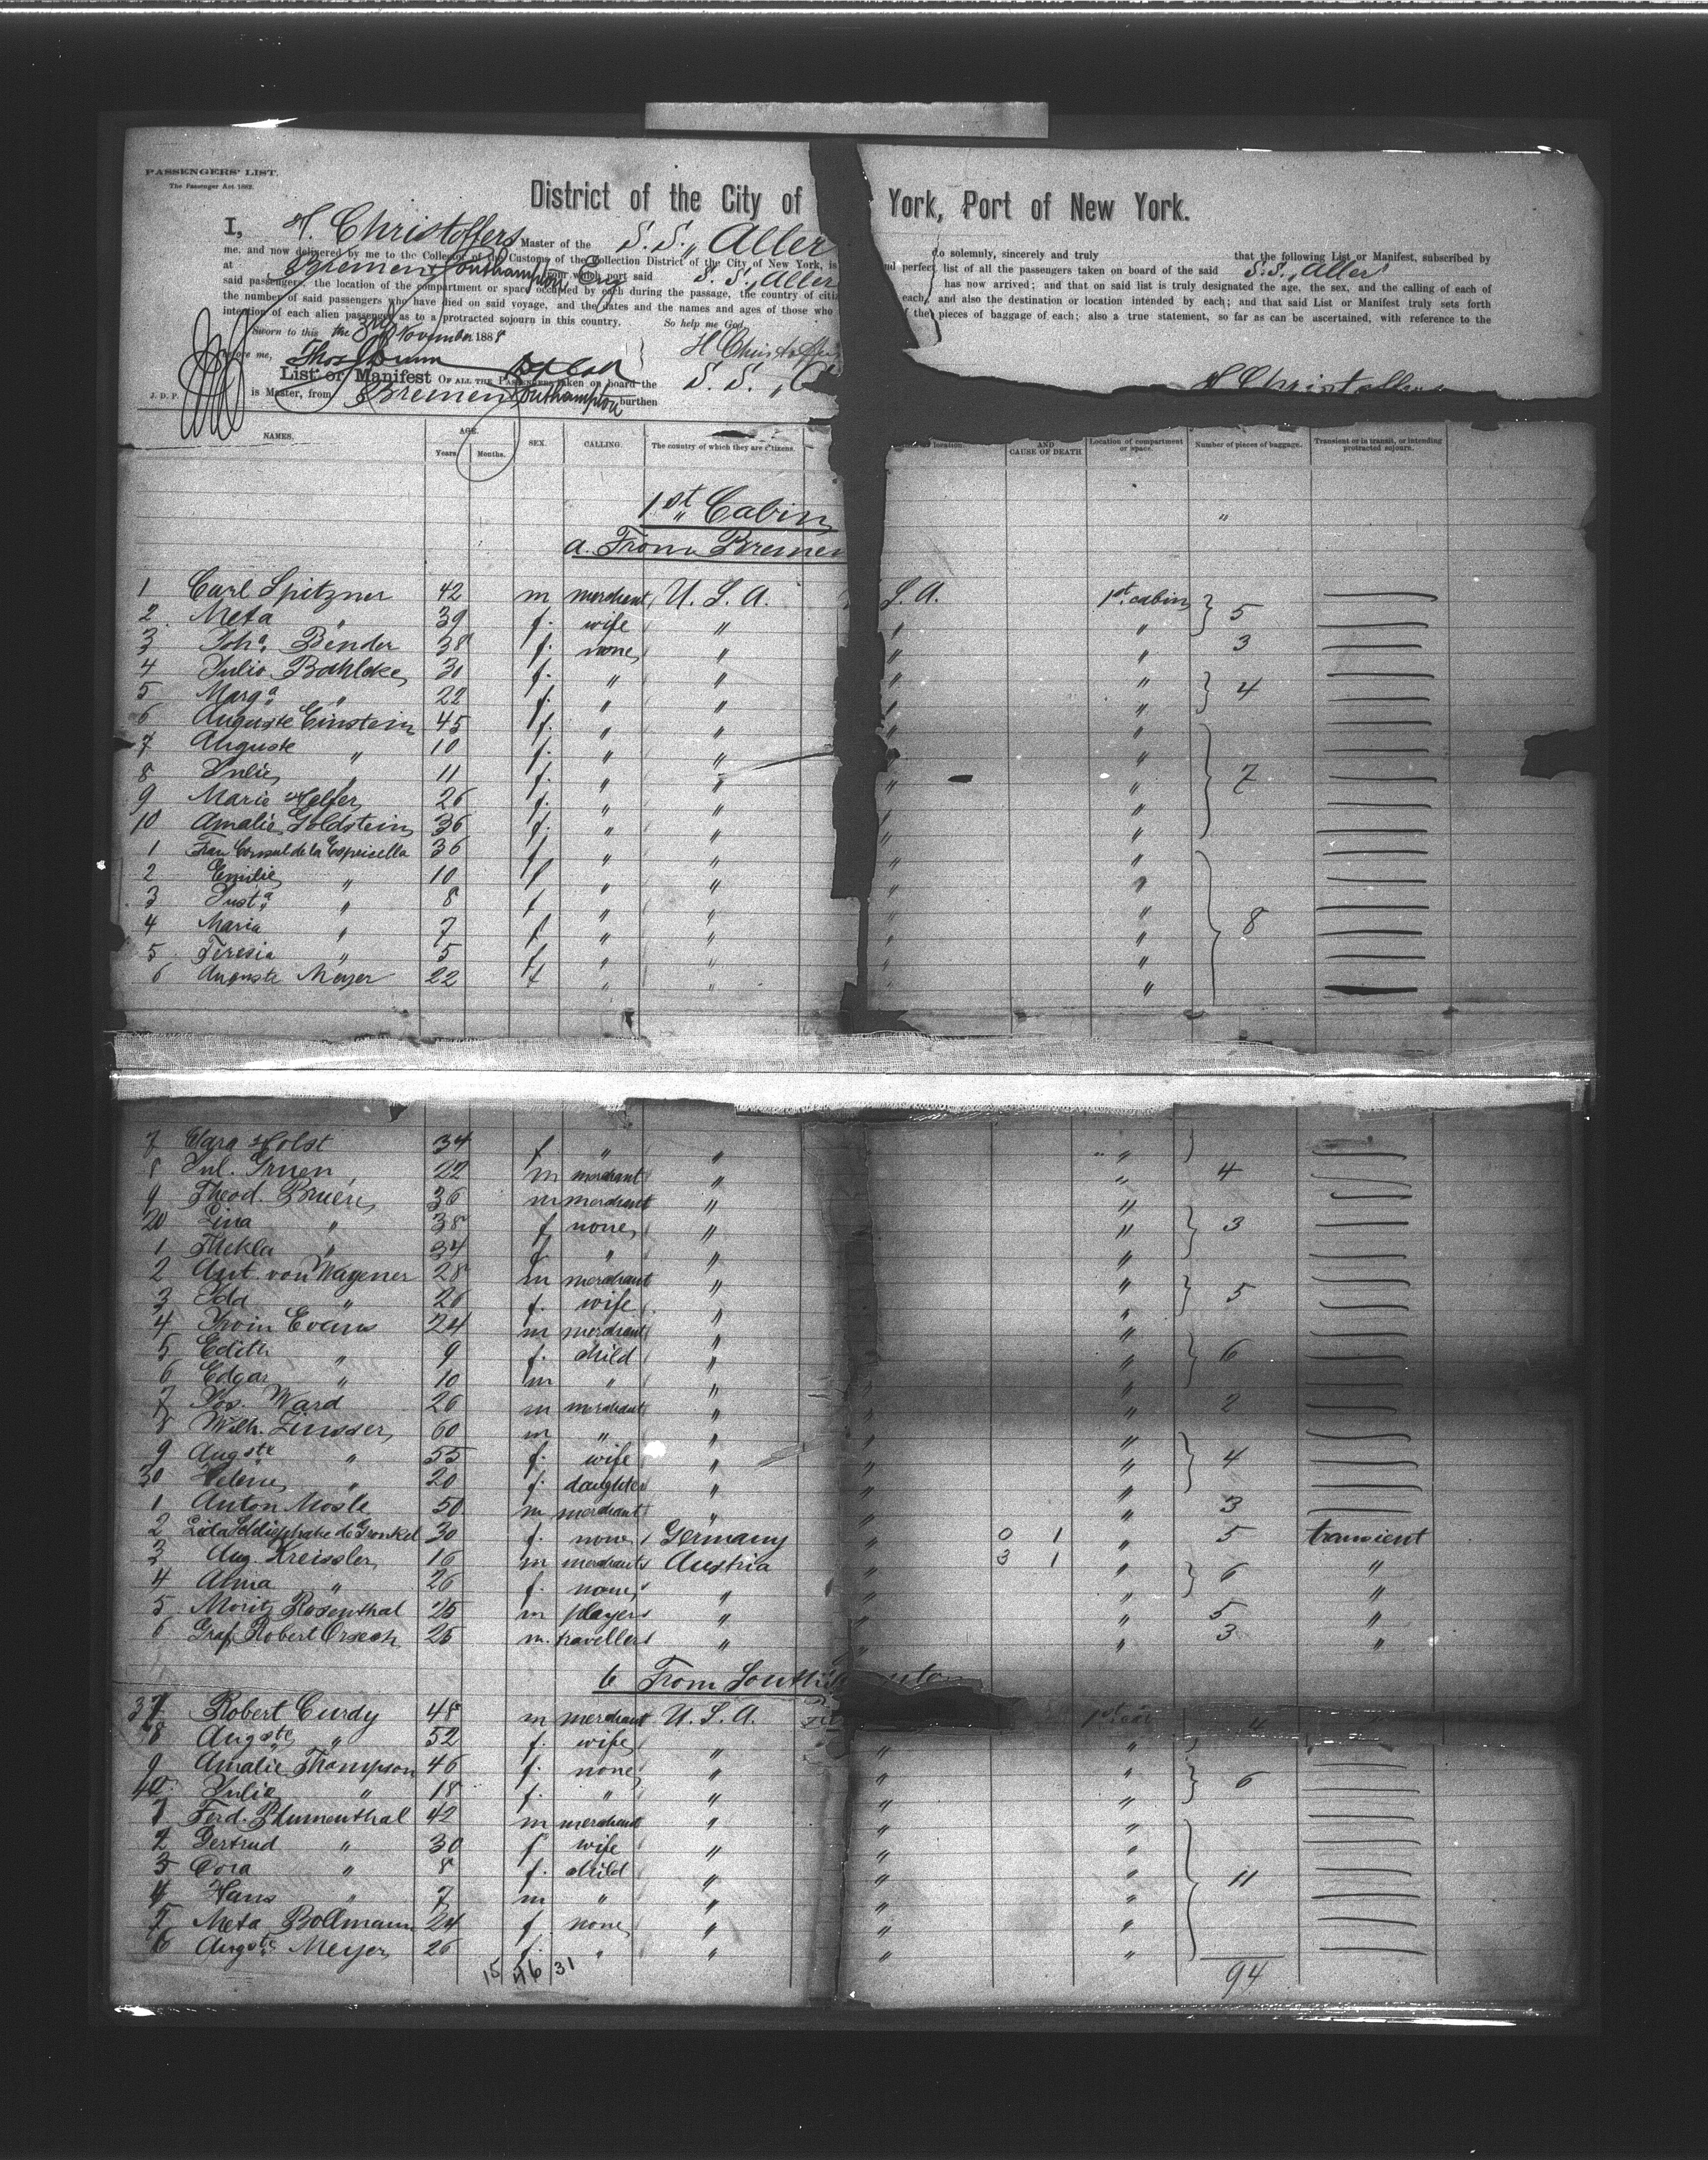 PASSENGERS' LIST.
The Passenger Act 1882.
District of the City of York, Port of New York.
I, H. Christoffers Master of the S.S. „Aller do solemnly, sincerely and truly that the following List or Manifest, subscribed by
me, and now delivered by me to the Collector of the Customs of the Collection District of the City of New York, is nd perfect list of all the passengers taken on board of the said S.S. „Aller"
at Bremen & Southampton Eng from which port said S. S. „Aller has now arrived; and that on said list is truly designated the age, the sex, and the calling of each of
said passengers, the location of the compartment or space occupied by each during the passage, the country of citi each, and also the destination or location intended by each; and that said List or Manifest truly sets forth
the number of said passengers who have died on said voyage, and the dates and the names and ages of those who the pieces of baggage of each; also a true statement, so far as can be ascertained, with reference to the
intention of each alien passenger as to a protracted sojourn in this country. So help me God
Sworn to this the 3rd November 1888 H Christoffers
before me,
List or Manifest OF ALL THE PASSENGERS taken on board the S. S. „ H Christoffers
J. D. P. is Master, from Bremen Southampton burthen
NAMES. AGE. Years. Months. SEX. CALLING. The country of which they are citizens. location. AND CAUSE OF DEATH Location of compartment or space. Number of pieces of baggage. Transient or in transit, or intending protracted sojourn.
1st Cabin "
a. From Bremen
1 Carl Spitzner 42 m merchant U. S. A. S. A. 1st cabin 5
2 Meta " 39 f. wife " " "
3 Joha. Bender 38 f. none " " " 3
4 Julie Bahlcke 30 f. " " " " 4
5 Marga. " 22 f. " " " "
6 Auguste Einstein 45 f. " " " " 7
7 Auguste " 10 f. " " " "
8 Julie " 11 f. " " " "
9 Marie Helfer 26 f. " " " "
10 Amalie Goldstein 36 f. " " " "
1 Frau Consul de la Espriella 36 f " " " " 8
2 Emilie " 10 f " " " "
3 Justa. " 8 f " " " "
4 Maria " 7 f " " " "
5 Teresia " 5 f " " " "
6 Auguste Meyer 22 f " " " "
7 Clara Holst 34 f " " "
8 Jul. Gruen 22 m merchant " " 4
9 Theod. Bruere 36 m merchant " "
20 Lina " 38 f none " " 3
1 Thekla " 34 f " " "
2 Ant. von Wagener 28 m merchant " " 5
3 Ida " 26 f. wife " "
4 Irvin Evans 24 m merchant " " 6
5 Edith " 9 f. child " "
6 Edgar " 10 m " " "
7 Jos. Ward 26 m merchant " " 2
8 Wilh. Zinsser 60 m " " " " 4
9 Augste " 55 f. wife " " "
30 Helene " 20 f. daughter " " "
1 Anton Mosle 50 m merchant " " " 3
2 30 f. none Germany " 0 1 " 5 transient
3 Aug. Kreissler 16 m merchant Austria " 3 1 " 6 "
4 Alma " 26 f. none " " " "
5 Moritz Rosenthal 25 m player " " " 5 "
6 Graf Robert 25 m. traveller " " " 3 "
b From Southampton
37 Robert Curdy 48 m merchant U. S. A. 1st cabin 4
8 Augste " 52 f. wife " " "
9 Amalie Thompson 46 f. none " " " 6
40 Julie " 18 f. " " " "
1 Ferd. Blumenthal 42 m merchant " " " 11
2 Gertrud " 30 f wife " " "
3 Cora " 8 f. child " " "
4 Hans " 7 m " " " "
5 Meta Bollmann 24 f. none " " "
6 Augste Meyer 26 f. " " " "
15 46 31 94